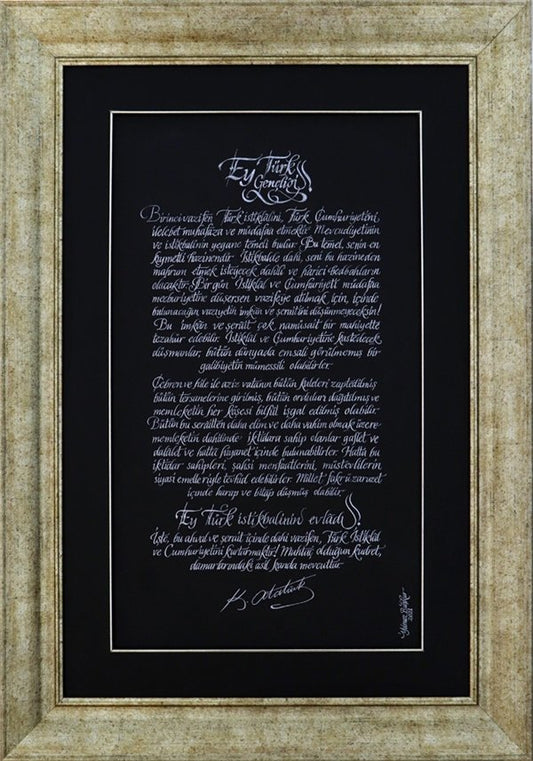 Ey Türk
Gençliği!
Birinci vazifen, Türk istiklâlini, Türk Cumhuriyetini,
ilelebet muhafaza ve müdafaa etmektir. Mevcudiyetinin
ve istikbalinin yegane temeli budur. Bu temel, senin en
kıymetli hazinendir. İstikbalde dahi, seni bu hazineden
mahrum etmek isteyecek dahili ve harici bedhahların
olacaktır. Bir gün, İstiklâl ve Cumhuriyeti müdafaa
mecburiyetine düşersen, vazifeye atılmak için, içinde
bulunacağın vaziyetin imkân ve şeraitini düşünmeyeceksin!
Bu imkân ve şerait, çok namüsait bir mahiyette
tezahür edebilir. İstiklâl ve Cumhuriyetine kastedecek
düşmanlar, bütün dünyada emsali görülmemiş bir
galibiyetin mümessili olabilirler.
Cebren ve hile ile aziz vatanın bütün kaleleri zaptedilmiş,
bütün tersanelerine girilmiş, bütün orduları dağıtılmış ve
memleketin her köşesi bilfiil işgal edilmiş olabilir.
Bütün bu şeraitten daha elim ve daha vahim olmak üzere
memleketin dahilinde iktidara sahip olanlar gaflet ve
dalâlet ve hatta hıyanet içinde bulunabilirler. Hatta bu
iktidar sahipleri, şahsi menfaatlerini, müstevlilerin
siyasi emelleriyle tevhid edebilirler. Millet fakrü zaruret
içinde harap ve bîtap düşmüş olabilir.
Ey Türk istikbalinin evlâdı!
İşte, bu ahval ve şerait içinde dahi vazifen, Türk İstiklâl
ve Cumhuriyetini kurtarmaktır! Muhtaç olduğun kudret,
damarlarındaki asil kanda mevcuttur.
K. Atatürk